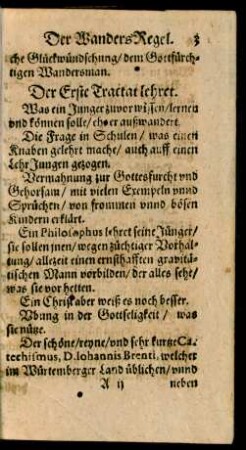 Der Wanders Regel. 3
che Glückwündschung / dem Gottfürch-
tigen Wandersman.
Der Erste Tractat lehret.
Was ein Junger zuvor wissen / lernen
vnd können solle / eh er außwandert.
Die Frage in Schulen / was einen
Knaben gelehrt mache / auch auff einen
Lehr Jungen gezogen.
Vermahnung zur Gottesfurcht vnd
Gehorsam / mit vielen Exempeln vnnd
Sprüchen / von frommen vnnd bösen
Kindern erklärt.
Ein Philosophus lehret seine Jünger /
sie sollen jnen / wegen züchtiger Vorhal-
tung / allezeit einen ernsthafften gravitä-
tischen Mann vorbilden / der alles sehe /
was sie vor hetten.
Ein Christ aber weiß es noch besser.
Vbung in der Gottseligkeit / was
sie nütze.
Der schöne / reyne / vnd sehr kurtze Ca-
techismus, D. Iohannis Brenti, welcher
im Würtemberger Land üblichen / vnnd
A ij neben